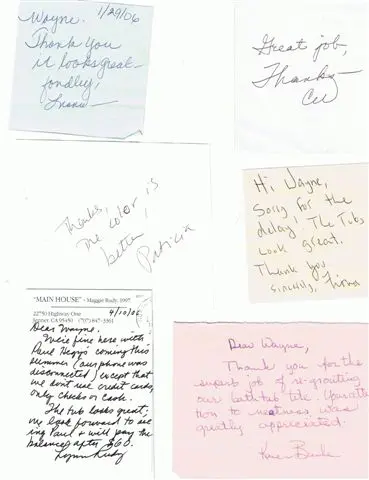 Wayne, 1/29/06
Thank You
it looks great—
fondly,
Great job,
Thanks—
Thanks,
The color is
better!
Patricia
Hi Wayne,
Sorry for the
delay! The Tubs
look great.
Thank you
Sincerely, Fiona
"MAIN HOUSE" - Maggie Rudy, 1997
22750 Highway One
Jenner, CA 95450 (707) 847-3361
4/10/06
Dear Wayne,
We're fine here with
Paul coming this
summer (our phone was
disconnected) except that
we don't use credit cards,
only checks or cash.
The tub looks great;
we look forward to see
ing Paul & will pay the
balance after $60.
Lynn Rudy
Dear Wayne,
Thank you for the
superb job of re-grouting
our bathtub tile. Your atten
tion to neatness, was
greatly appreciated.